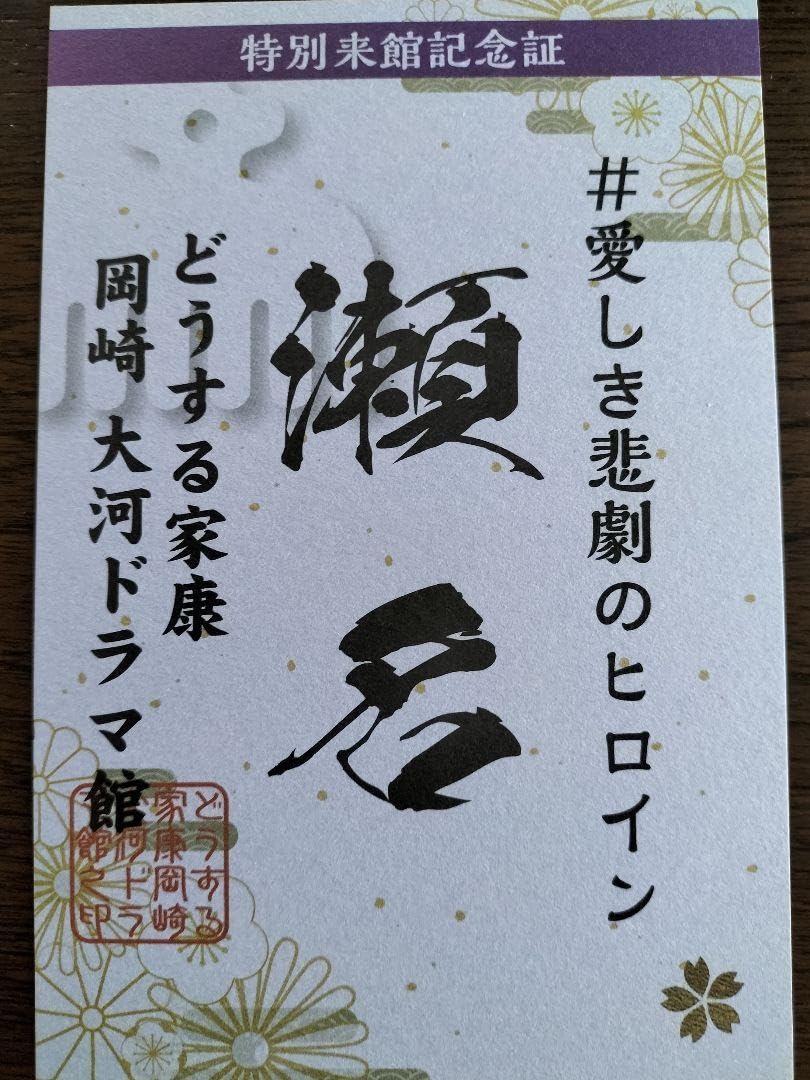 特別来館記念証
#愛しき悲劇のヒロイン
瀬名
どうする家康
岡崎 大河ドラマ館
どうする
家康岡崎
大河ドラ
マ館之印